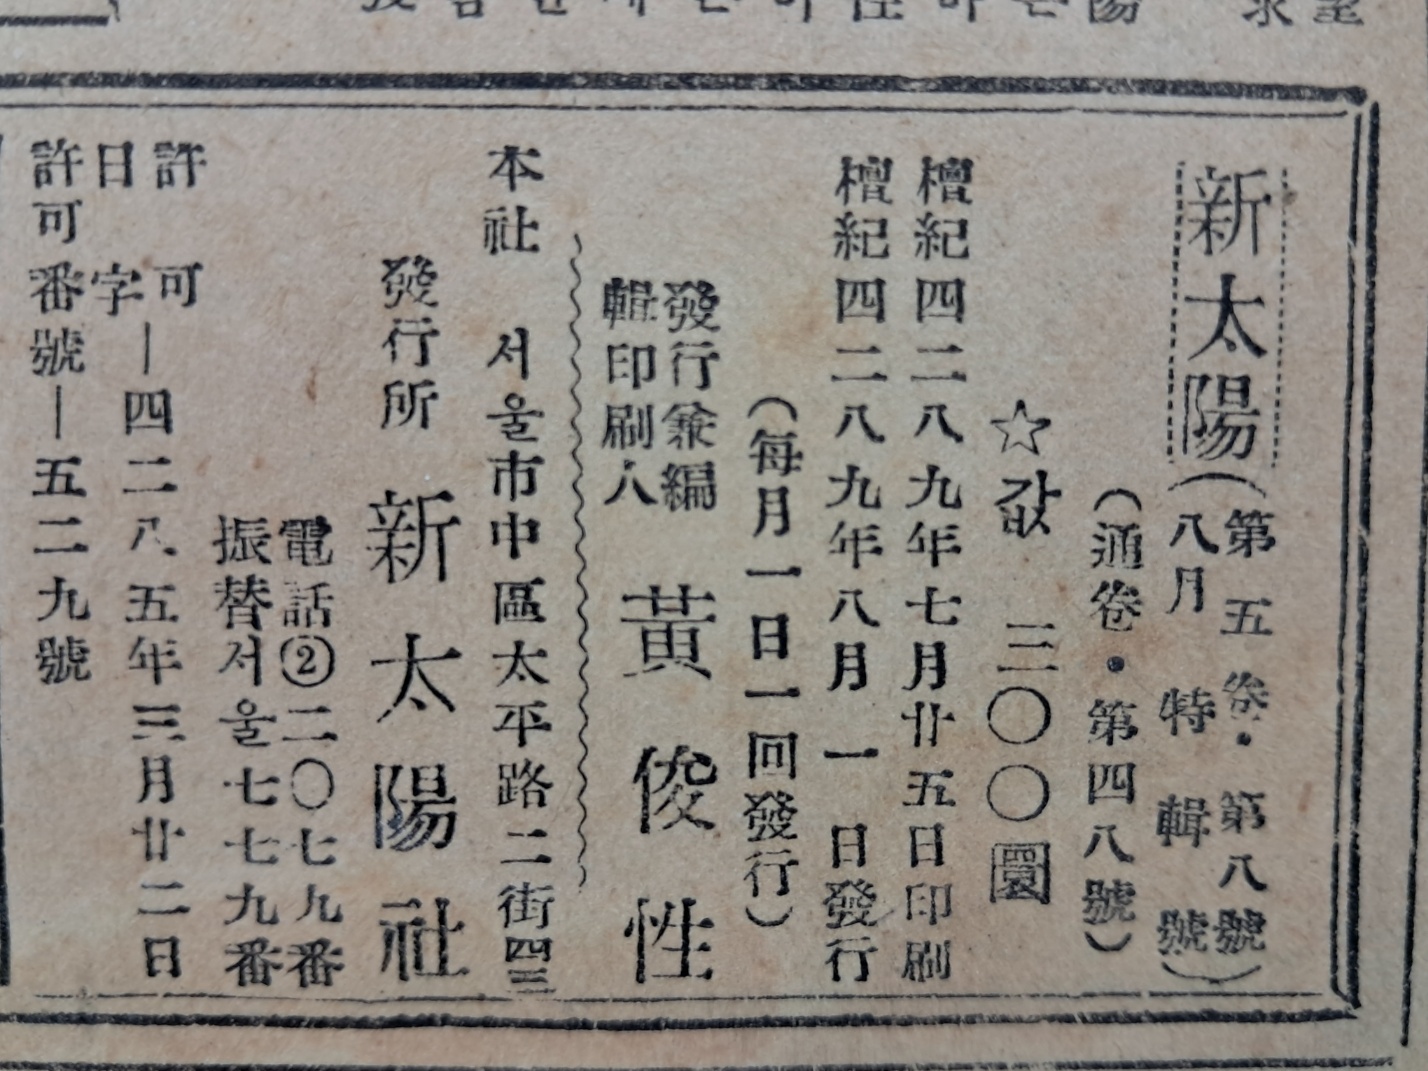 新太陽
(第五卷・第八號
八月特輯號)
(通卷・第四八號)
☆값 三〇〇圜
檀紀四二八九年七月廿五日印刷
檀紀四二八九年八月一日發行
(每月一日一回發行)
發行兼編
輯印刷人
黃俊性
本社 서울市中區太平路二街四三
發行所 新太陽社
電話②二〇七九番
振替서울七七九番
許可
日字
—四二八五年三月廿二日
許可番號—五二九號